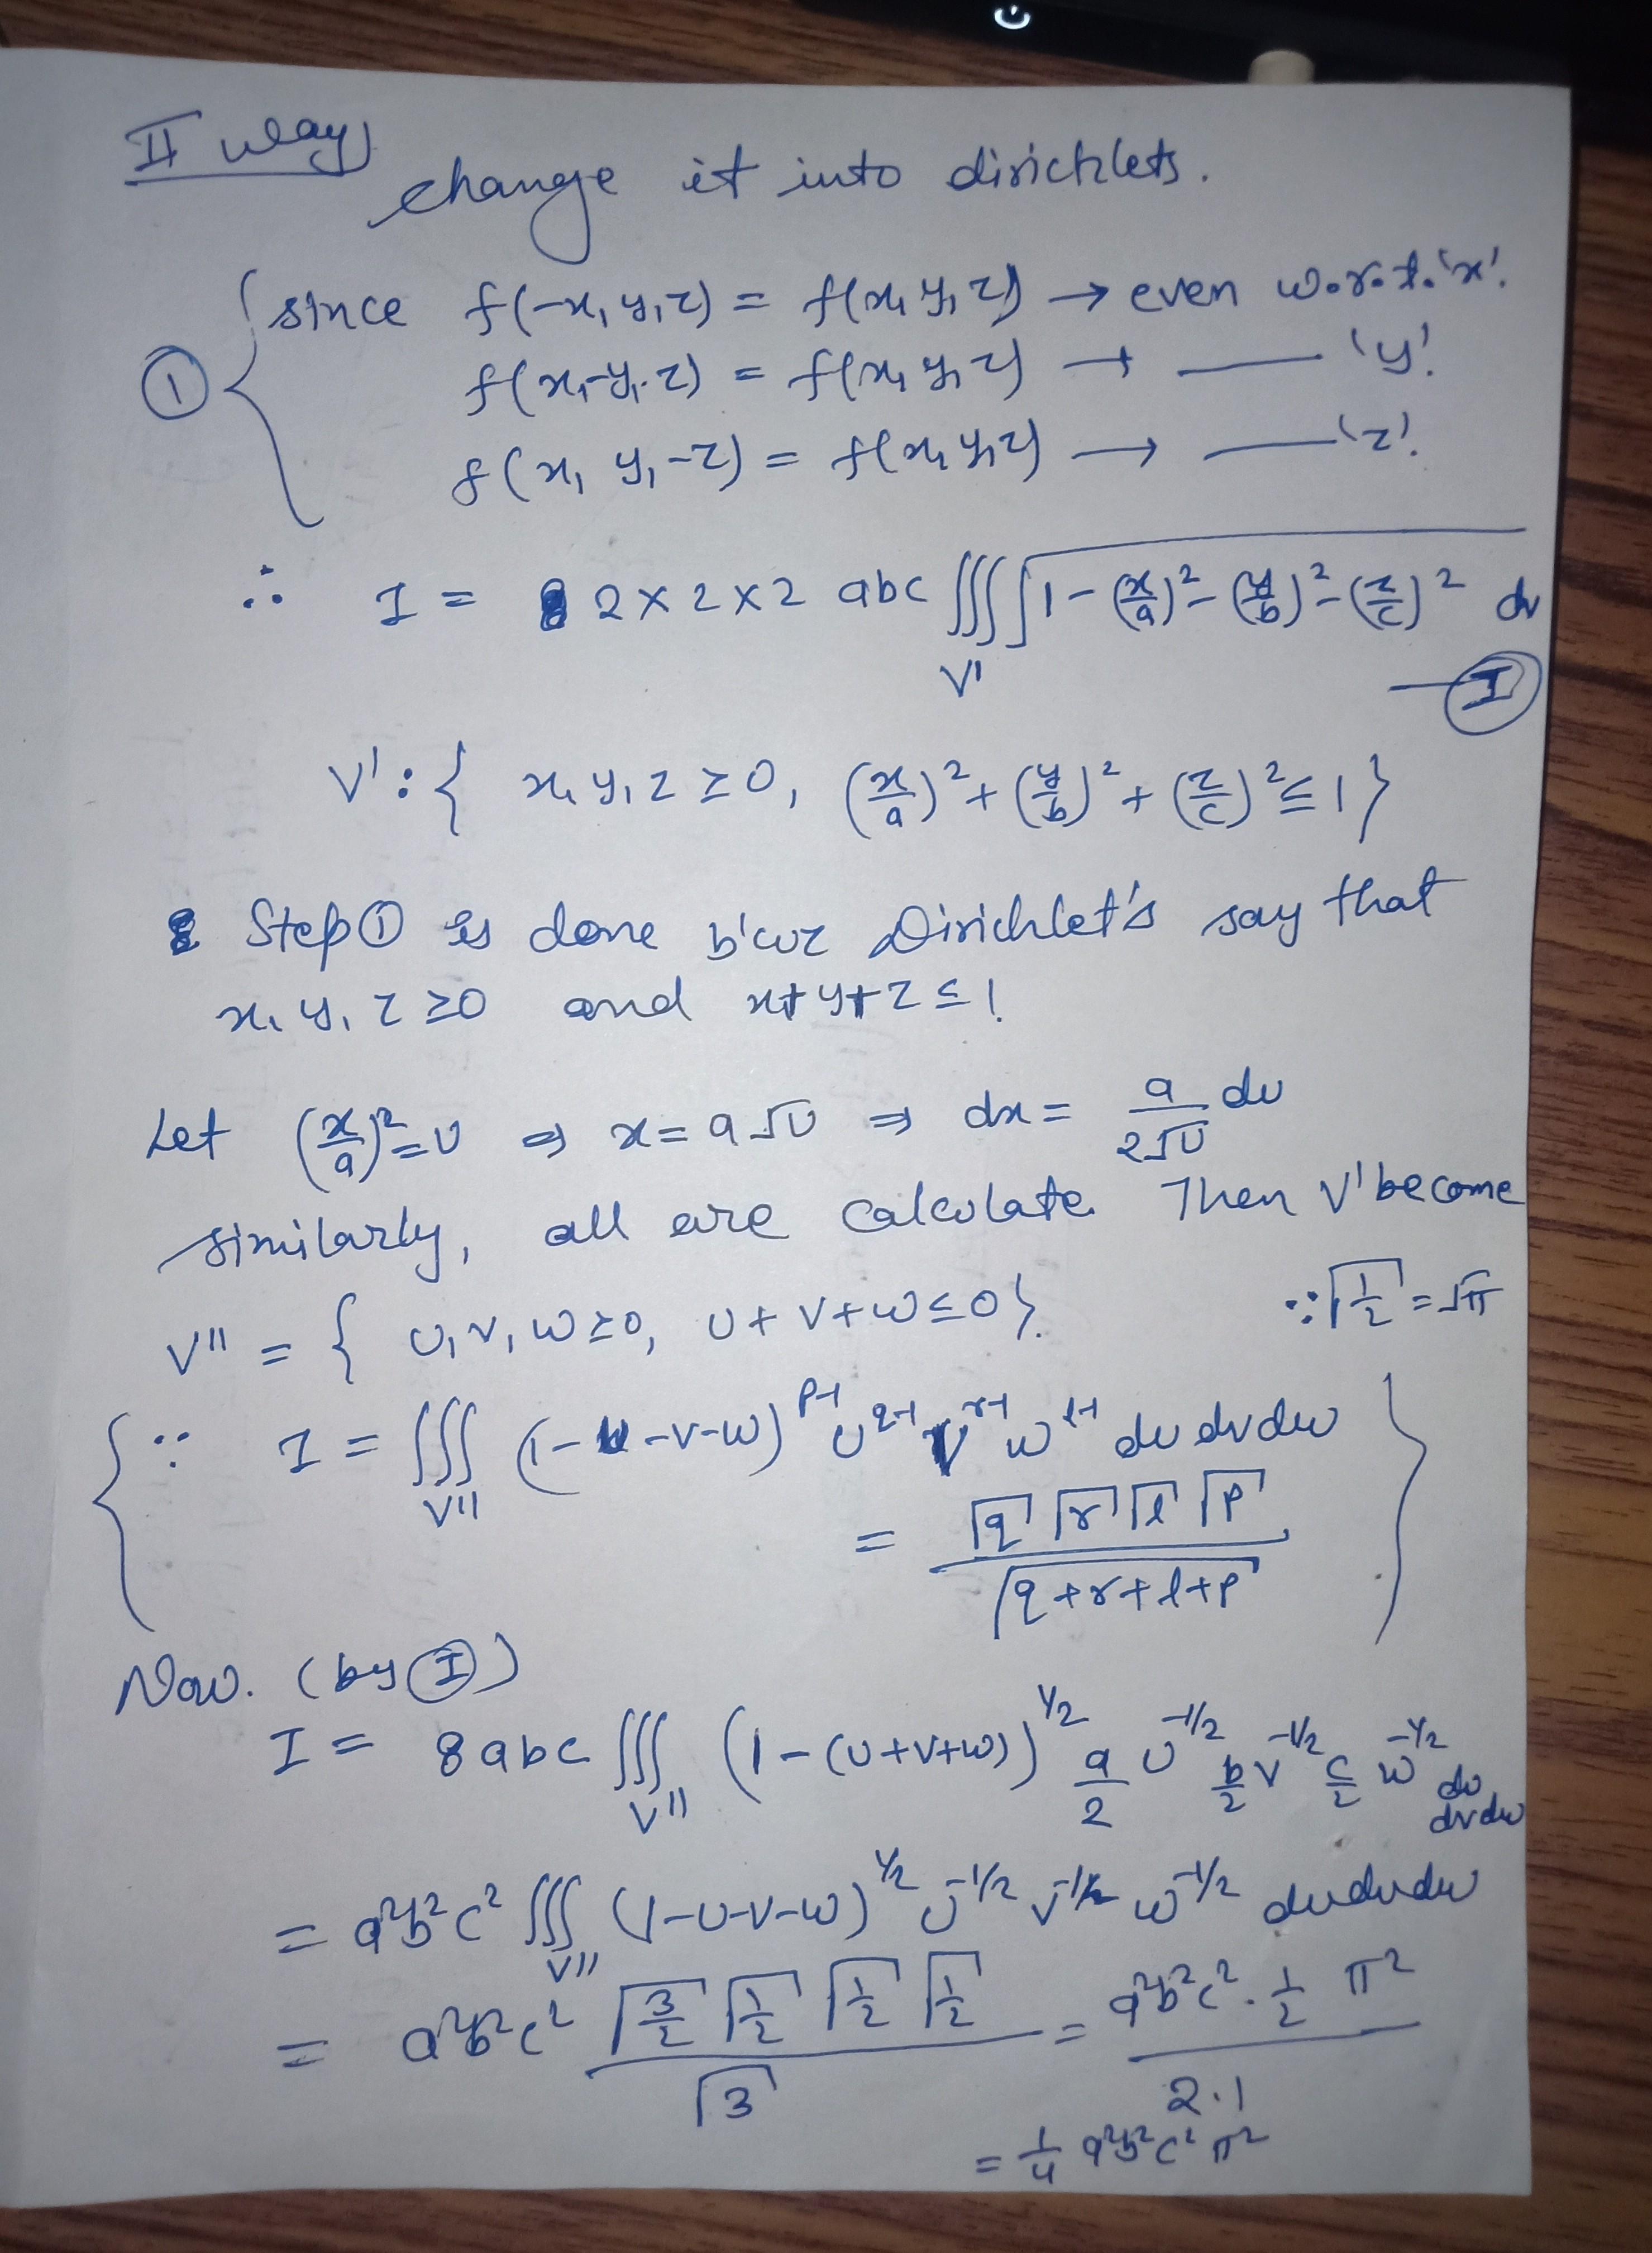 II way
change it into dirichlets.
① { since f(-x, y, z) = f(x, y, z) → even w.r.t. 'x'.
f(x, -y, z) = f(x, y, z) → —— 'y'.
f(x, y, -z) = f(x, y, z) → —— 'z'.
∴ I = 2×2×2 abc ∭_V' √(1-(x/a)²-(y/b)²-(z/c)²) dv
— Ⓘ
V' : { x, y, z ≥ 0, (x/a)² + (y/b)² + (z/c)² ≤ 1 }
Step ① is done b'coz Dirichlet's say that
x, y, z ≥ 0 and x+y+z ≤ 1
Let (x/a)² = u ⇒ x = a√u ⇒ dx = a/(2√u) du
similarly, all are calculate. Then V' become
V'' = { u, v, w ≥ 0, u+v+w ≤ 0 }. ∵ Γ(1/2) = √π
{ ∵ I = ∭_V'' (1-u-v-w)^(p-1) u^(q-1) v^(r-1) w^(l-1) du dv dw
= Γq Γr Γl Γp / Γ(q+r+l+p) }
Now. (by Ⓘ)
I = 8abc ∭_V'' (1-(u+v+w))^(1/2) a/2 u^(-1/2) b/2 v^(-1/2) c/2 w^(-1/2) du dv dw
= a²b²c² ∭_V'' (1-u-v-w)^(1/2) u^(-1/2) v^(-1/2) w^(-1/2) du dv dw
= a²b²c² Γ(3/2) Γ(1/2) Γ(1/2) Γ(1/2) / Γ3 = a²b²c² · 1/2 π² / 2·1
= 1/4 a²b²c² π²